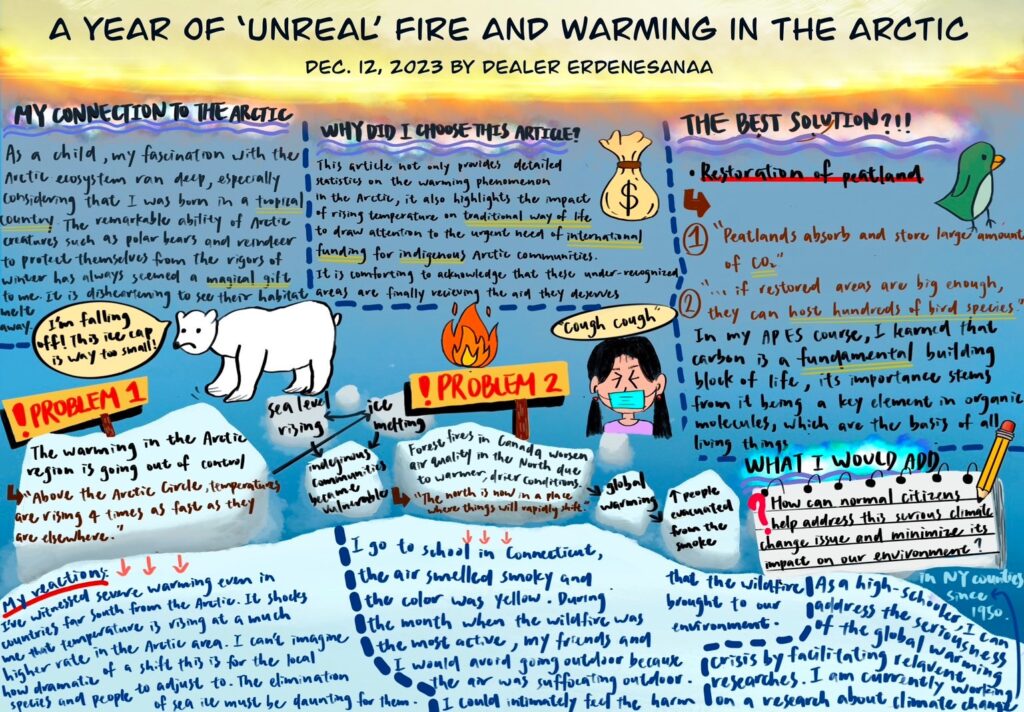 A YEAR OF 'UNREAL' FIRE AND WARMING IN THE ARCTIC
DEC. 12, 2023 BY DEALER ERDENESANAA
MY CONNECTION TO THE ARCTIC
As a child, my fascination with the
Arctic ecosystem ran deep, especially
considering that I was born in a tropical
country. The remarkable ability of Arctic
creatures such as polar bears and reindeer
to protect themselves from the rigors of
winter has always seemed a magical gift
to me. It is disheartening to see their habitat
melt
away.
WHY DID I CHOOSE THIS ARTICLE?
This article not only provides detailed
statistics on the warming phenomenon
in the Arctic, it also highlights the impact
of rising temperature on traditional way of life
to draw attention to the urgent need of international
funding for indigenous Arctic communities.
It is comforting to acknowledge that these under-recognized
areas are finally recieving the aid they deserves
$
THE BEST SOLUTION?!!
• Restoration of peatland
① "Peatlands absorb and store large amount
of CO₂"
② "... if restored areas are big enough,
they can host hundreds of bird species."
In my APES course, I learned that
carbon is a fundamental building
block of life, its importance stems
from it being a key element in organic
molecules, which are the basis of all
living things
I'm falling
off! This ice cap
is way too small!
! PROBLEM 1
The warming in the Arctic
region is going out of control
"Above the Arctic Circle, temperatures
are rising 4 times as fast as they
are elsewhere."
sea level
rising
ice
melting
indeginous
communities
became
vulnerable
! PROBLEM 2
"Cough cough"
Forest fires in Canada worsen
air quality in the North due
to warmer, drier conditions.
"The north is now in a place
where things will rapidly shift."
global
warming
↑ people
evacuated
from the
smoke
WHAT I WOULD ADD
? How can normal citizens
help address this serious climate
change issue and minimize its
impact on our environment?
My reactions:
I've witnessed severe warming even in
countries far south from the Arctic. It shocks
me that temperature is rising at a much
higher rate in the Arctic area. I can't imagine
how dramatic of a shift this is for the local
species and people to adjust to. The elimination
of sea ice must be daunting for them.
I go to school in Connecticut,
the air smelled smoky and
the color was yellow. During
the month when the wildfire was
the most active, my friends and
I would avoid going outdoor because
the air was suffocating outdoor.
I could intimately feel the harm
that the wildfire
brought to our
environment.
As a high-schooler, I can
address the seriousness
of the global warming
crisis by facilitating relavent
researches. I am currently working
on a research about climate change
in NY counties
since
1950.